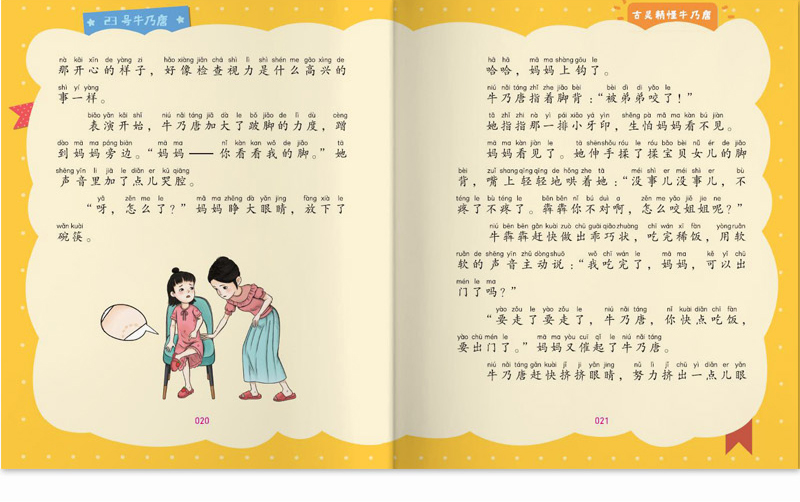 23号牛乃唐
nà kāi xīn de yàng zi hǎo xiàng jiǎn chá shì lì shì shén me gāo xìng de
那开心的样子，好像检查视力是什么高兴的
shì yí yàng
事一样。
biǎo yǎn kāi shǐ niú nǎi táng jiā dà le bǒ jiǎo de lì dù cèng
表演开始，牛乃唐加大了跛脚的力度，蹭
dào mā ma páng biān mā ma nǐ kàn kan wǒ de jiǎo tā
到妈妈旁边。“妈妈——你看看我的脚。”她
shēng yīn lǐ jiā le diǎn er kū qiāng
声音里加了点儿哭腔。
yā zěn me le mā ma zhēng dà yǎn jing fàng xià le
“呀，怎么了？”妈妈睁大眼睛，放下了
wǎn kuài
碗筷。
020
古灵精怪牛乃唐
hā hā mā ma shàng gōu le
哈哈，妈妈上钩了。
niú nǎi táng zhǐ zhe jiǎo bèi bèi dì di yǎo le
牛乃唐指着脚背：“被弟弟咬了！”
tā zhǐ zhǐ nà yì pái xiǎo yá yìn shēng pà mā ma kàn bú jiàn
她指指那一排小牙印，生怕妈妈看不见。
mā ma kàn jiàn le tā shēn shǒu róu le róu bǎo bèi nǚ ér de jiǎo
妈妈看见了。她伸手揉了揉宝贝女儿的脚
bèi zuǐ shang qīng qīng de hǒng zhe tā méi shì er méi shì er bù
背，嘴上轻轻地哄着她：“没事儿没事儿，不
téng le bù téng le bēn bēn nǐ bú duì a zěn me yǎo jiě jie ne
疼了不疼了。犇犇你不对啊，怎么咬姐姐呢？”
niú bēn bēn gǎn kuài zuò chū guāi qiǎo zhuàng chī wán xī fàn yòng ruǎn
牛犇犇赶快做出乖巧状，吃完稀饭，用软
ruǎn de shēng yīn zhǔ dòng shuō wǒ chī wán le mā ma kě yǐ chū
软的声音主动说：“我吃完了，妈妈，可以出
mén le ma
门了吗？”
yào zǒu le yào zǒu le niú nǎi táng nǐ kuài diǎn chī fàn
“要走了要走了，牛乃唐，你快点吃饭，
yào chū mén le mā ma yòu cuī qǐ le niú nǎi táng
要出门了。”妈妈又催起了牛乃唐。
niú nǎi táng gǎn kuài jǐ jǐ yǎn jing nǔ lì jǐ chū yì diǎn er yǎn
牛乃唐赶快挤挤眼睛，努力挤出一点儿眼
021